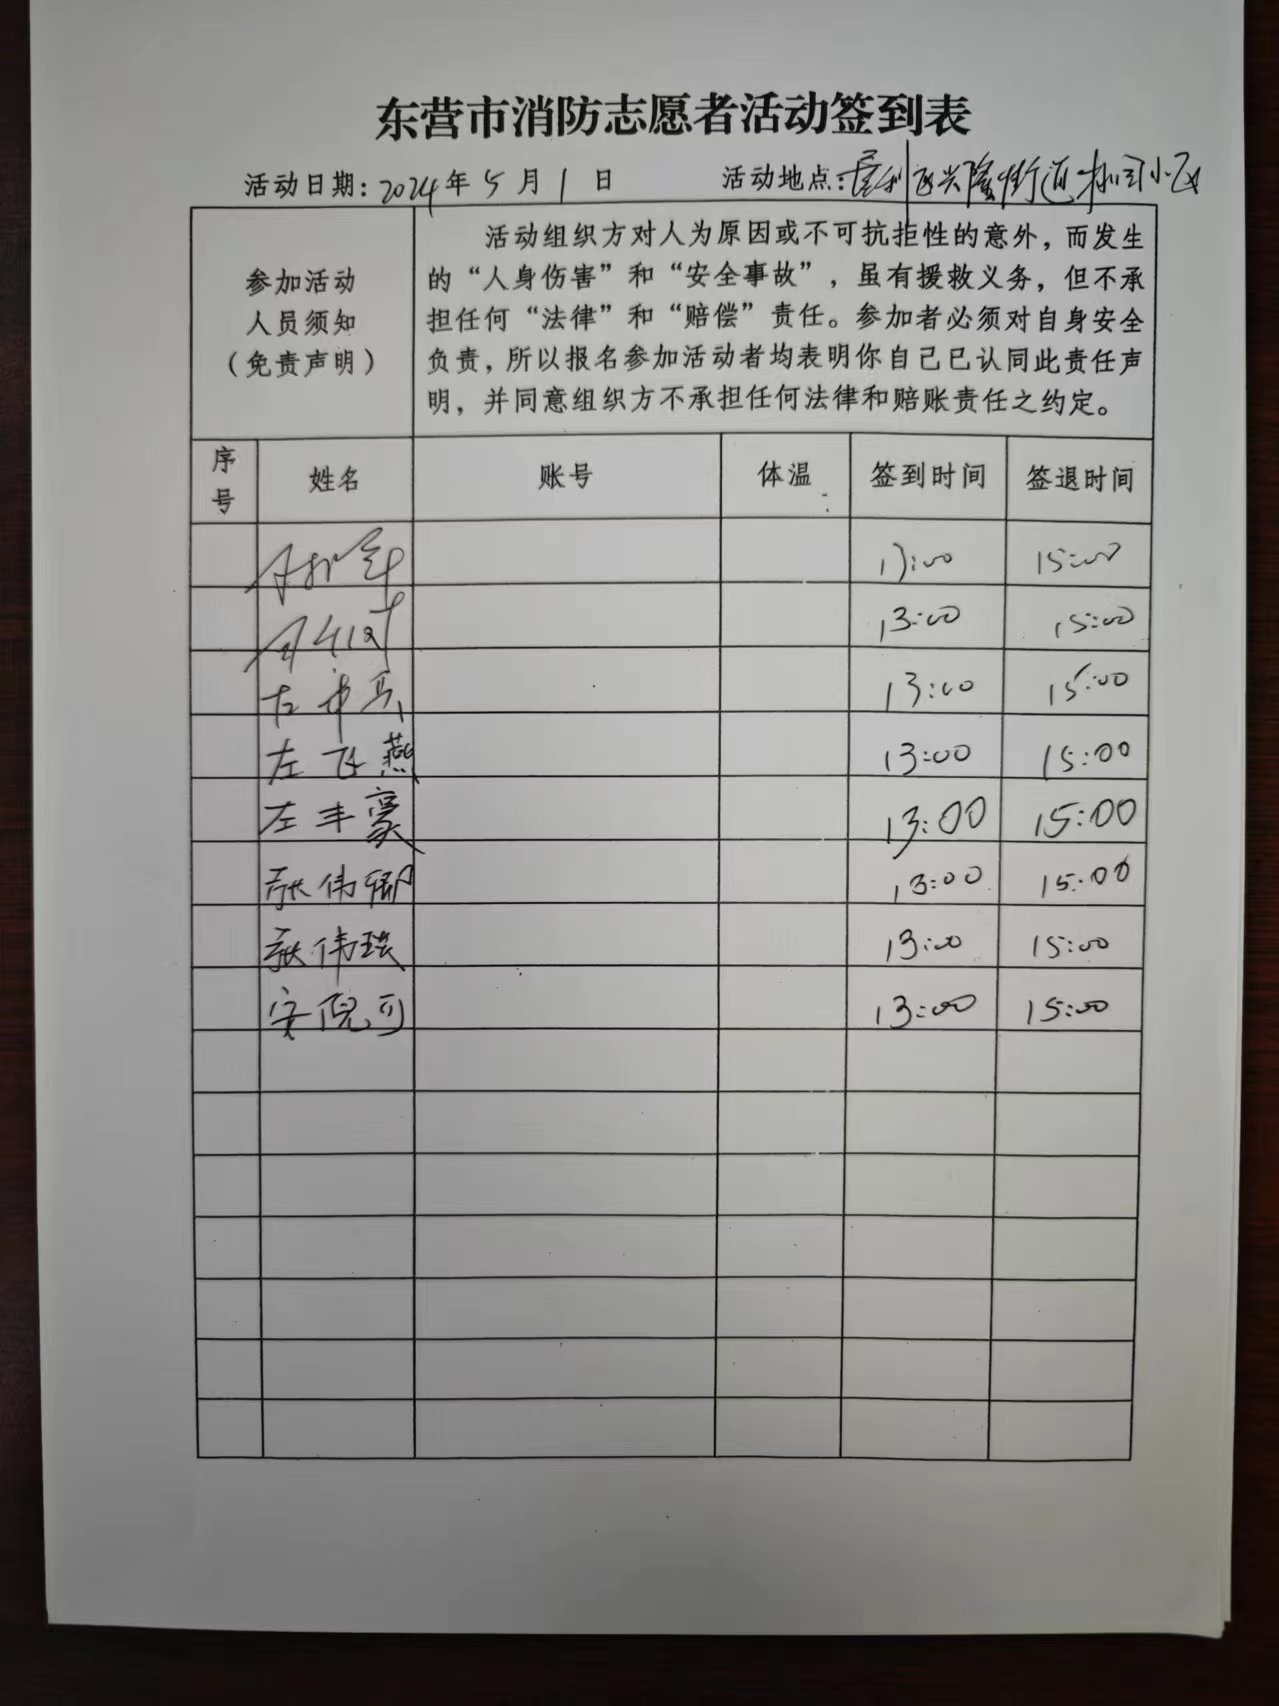 东营市消防志愿者活动签到表
活动日期：2024年5月1日 活动地点：垦利区兴隆街道小区
参加活动
人员须知
（免责声明）
活动组织方对人为原因或不可抗拒性的意外，而发生
的“人身伤害”和“安全事故”，虽有援救义务，但不承
担任何“法律”和“赔偿”责任。参加者必须对自身安全
负责，所以报名参加活动者均表明你自己已认同此责任声
明，并同意组织方不承担任何法律和赔账责任之约定。
序号 姓名 账号 体温 签到时间 签退时间
13:00 15:00
13:00 15:00
左 13:00 15:00
左飞燕 13:00 15:00
左丰豪 13:00 15:00
伟卿 13:00 15:00
伟 13:00 15:00
安倪可 13:00 15:00